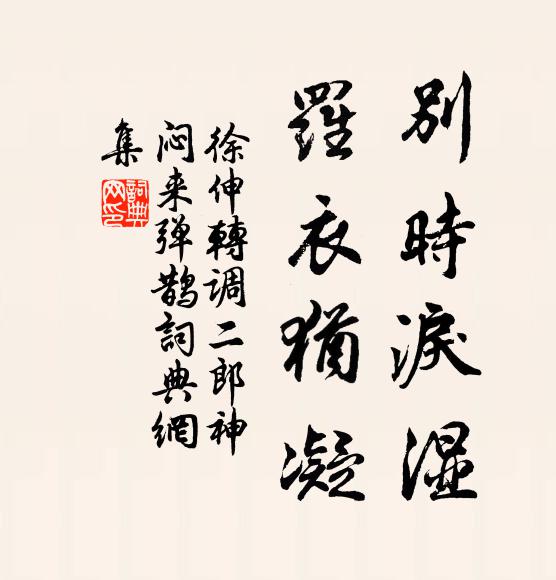 別時淚湿
羅衣猶凝
徐伸轉调二郎神
闷来弹鹊詞典網
集
詞典网印